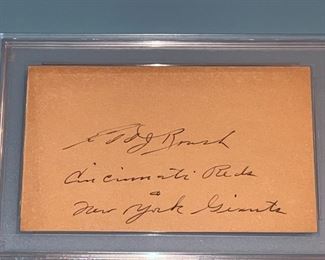 Edd J Roush
Cincinnati Reds
New York Giants